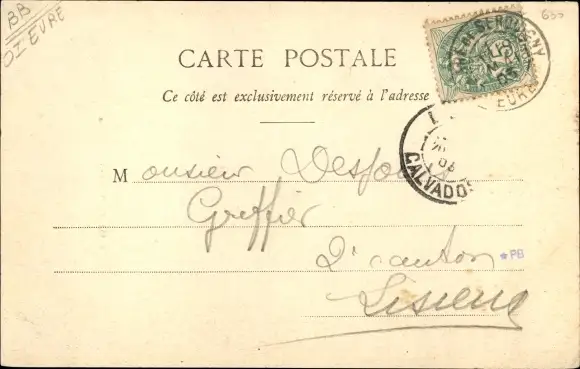 BB
EURE
630
CARTE POSTALE
Ce côté est exclusivement réservé à l'adresse
DE SERQUIGNY
EURE
CALVADOS
Monsieur
Greffier
2e canton
*PB
Lisieux